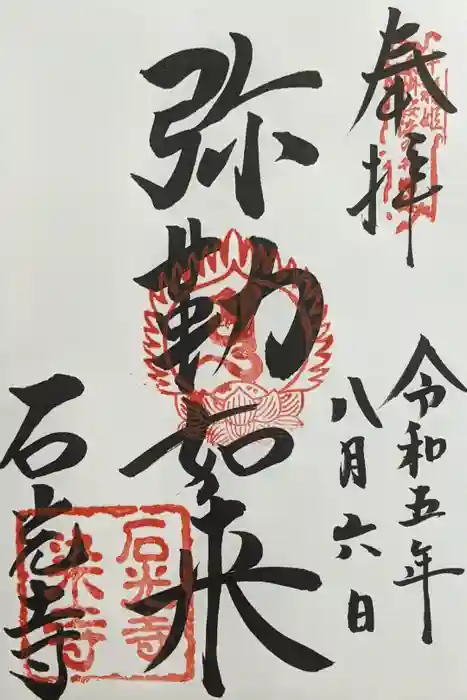 奉拝
令和五年
八月六日
弥勒如来
石光寺
石光寺
染寺